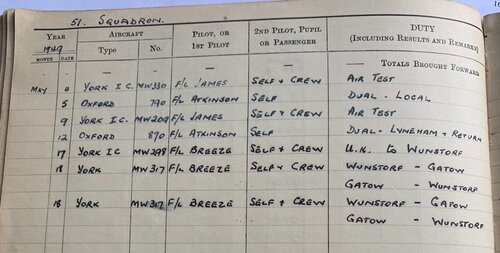 51. SQUADRON.
YEAR AIRCRAFT PILOT, OR 2ND PILOT, PUPIL DUTY
1949 Type No. 1ST PILOT OR PASSENGER (INCLUDING RESULTS AND REMARKS)
MONTH DATE
— — — — — TOTALS BROUGHT FORWARD
MAY YORK I C. MW330 F/L JAMES SELF & CREW AIR TEST
5 OXFORD 790 F/L ATKINSON SELF DUAL - LOCAL
9 YORK I C. MW209 F/L JAMES SELF & CREW AIR TEST
12 OXFORD 870 F/L ATKINSON SELF DUAL - LYNEHAM & RETURN
17 YORK IC MW298 F/L BREEZE SELF & CREW U.K. to WUNSTORF
18 YORK MW317 F/L BREEZE SELF & CREW WUNSTORF - GATOW
GATOW - WUNSTORF
18 YORK F/L BREEZE SELF & CREW WUNSTORF - GATOW
GATOW - WUNSTORF